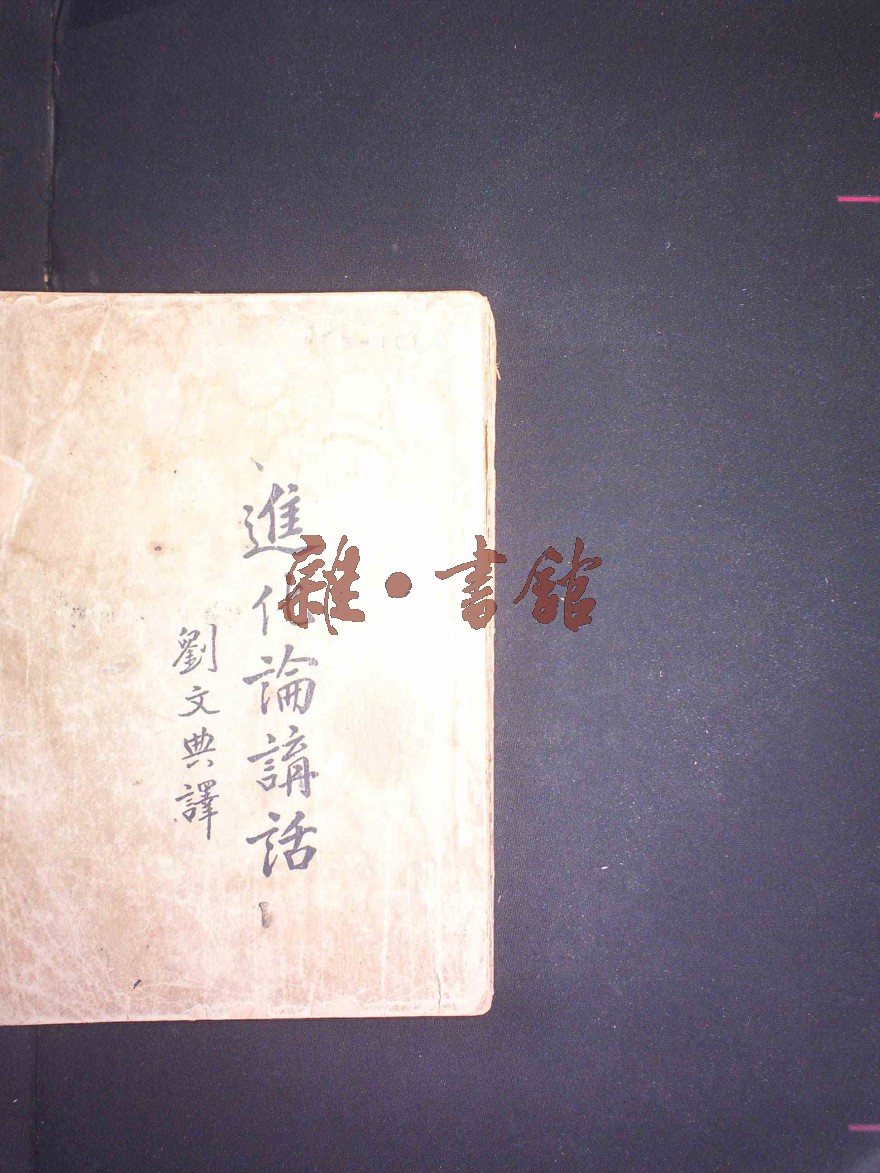 進化論講話
劉文典譯
雜·書館